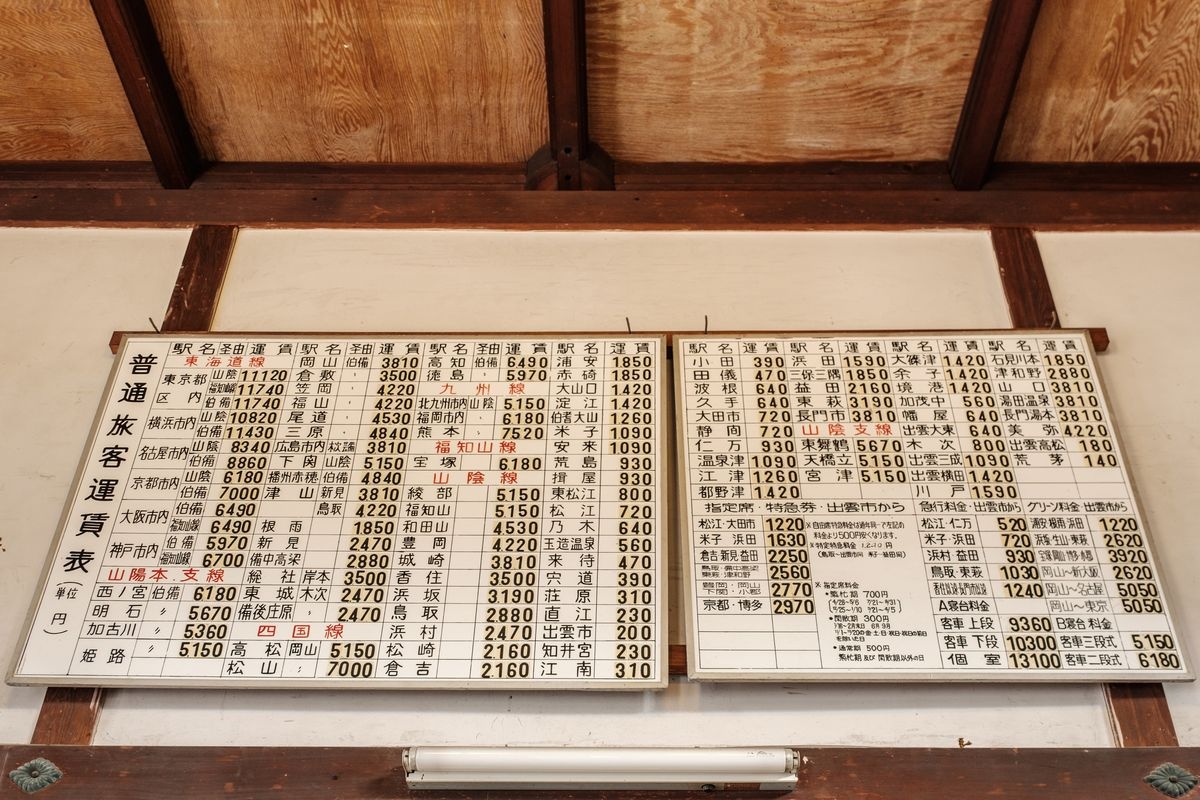 普通旅客運賃表
(単位 円)
駅名 経由 運賃 駅名 経由 運賃 駅名 経由 運賃 駅名 運賃
東海道線 岡山 伯備 3810 高知 伯備 6490 浦安 1850
東京都区内 山陰 11120 倉敷 〃 3500 徳島 〃 5970 赤碕 1850
福知山線 11740 笠岡 〃 4220 九州線 大山口 1420
伯備 11740 福山 〃 4220 北九州市内 山陰 5150 淀江 1420
横浜市内 山陰 10820 尾道 〃 4530 福岡市内 〃 6180 伯耆大山 1260
伯備 11430 三原 〃 4840 熊本 〃 7520 米子 1090
名古屋市内 山陰 8340 広島市内 3810 福知山線 安来 1090
伯備 8860 下関 山陰 5150 宝塚 6180 荒島 930
京都市内 山陰 6180 播州赤穂 伯備 4840 山陰線 揖屋 930
伯備 7000 津山 新見 3810 綾部 5150 東松江 800
大阪市内 伯備 6490 鳥取 4220 福知山 5150 松江 720
福知山線 6490 根雨 1850 和田山 4530 乃木 640
神戸市内 伯備 5970 新見 2470 豊岡 4220 玉造温泉 560
福知山線 6700 備中高梁 2880 城崎 3810 来待 470
山陽本支線 総社 岸本 3500 香住 3500 宍道 390
西ノ宮 伯備 6180 東城 木次 2470 浜坂 3190 荘原 310
明石 〃 5670 備後庄原 〃 2470 鳥取 2880 直江 230
加古川 〃 5360 四国線 浜村 2470 出雲市 200
姫路 〃 5150 高松 岡山 5150 松崎 2160 知井宮 230
松山 〃 7000 倉吉 2160 江南 310
駅名 運賃 駅名 運賃 駅名 運賃 駅名 運賃
小田 390 浜田 1590 大篠津 1420 石見川本 1850
田儀 470 三保三隅 1850 余子 1420 津和野 2880
波根 640 益田 2160 境港 1420 山口 3810
久手 640 東萩 3190 加茂中 560 湯田温泉 3810
大田市 720 長門市 3810 幡屋 640 長門湯本 3810
静間 720 山陰支線 出雲大東 640 美弥 4220
仁万 930 東舞鶴 5670 木次 800 出雲高松 180
温泉津 1090 天橋立 5150 出雲三成 1090 荒茅 140
江津 1260 宮津 5150 出雲横田 1420
都野津 1420 川戸 1590
指定席・特急券・出雲市から 急行料金・出雲市から グリーン料金・出雲市から
松江・大田市 1220
米子 浜田 1630
倉吉 新見 益田 2250
鳥取・備中高梁 東萩・津和野 2560
豊岡・岡山 下関・小郡 2770
京都・博多 2970
※自由席特急料金は通年同一で左記の
料金より500円安くなります。
※指定席料金
・繁忙期 700円
・閑散期 300円
・通常期 500円
繁忙期及び閑散期以外の日
松江・仁万 520 1220
米子・浜田 720 2620
浜村 益田 930 3920
鳥取・東萩 1030 岡山〜新大阪 2620
1240 岡山〜名古屋 5050
A寝台料金 岡山〜東京 5050
客車 上段 9360 B寝台料金
客車 下段 10300 客車三段式 5150
個室 13100 客車二段式 6180